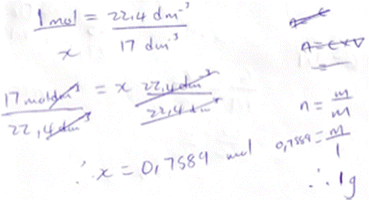 1 mol / x = 22.4 dm⁻³ / 17 dm³
17 mol dm³ / 22,4 dm³ = x 22,4 dm³ / 22,4 dm³
∴ x = 0,7589 mol
n = c × v
n = m / m
0,7589 = m / 1
∴ 1g